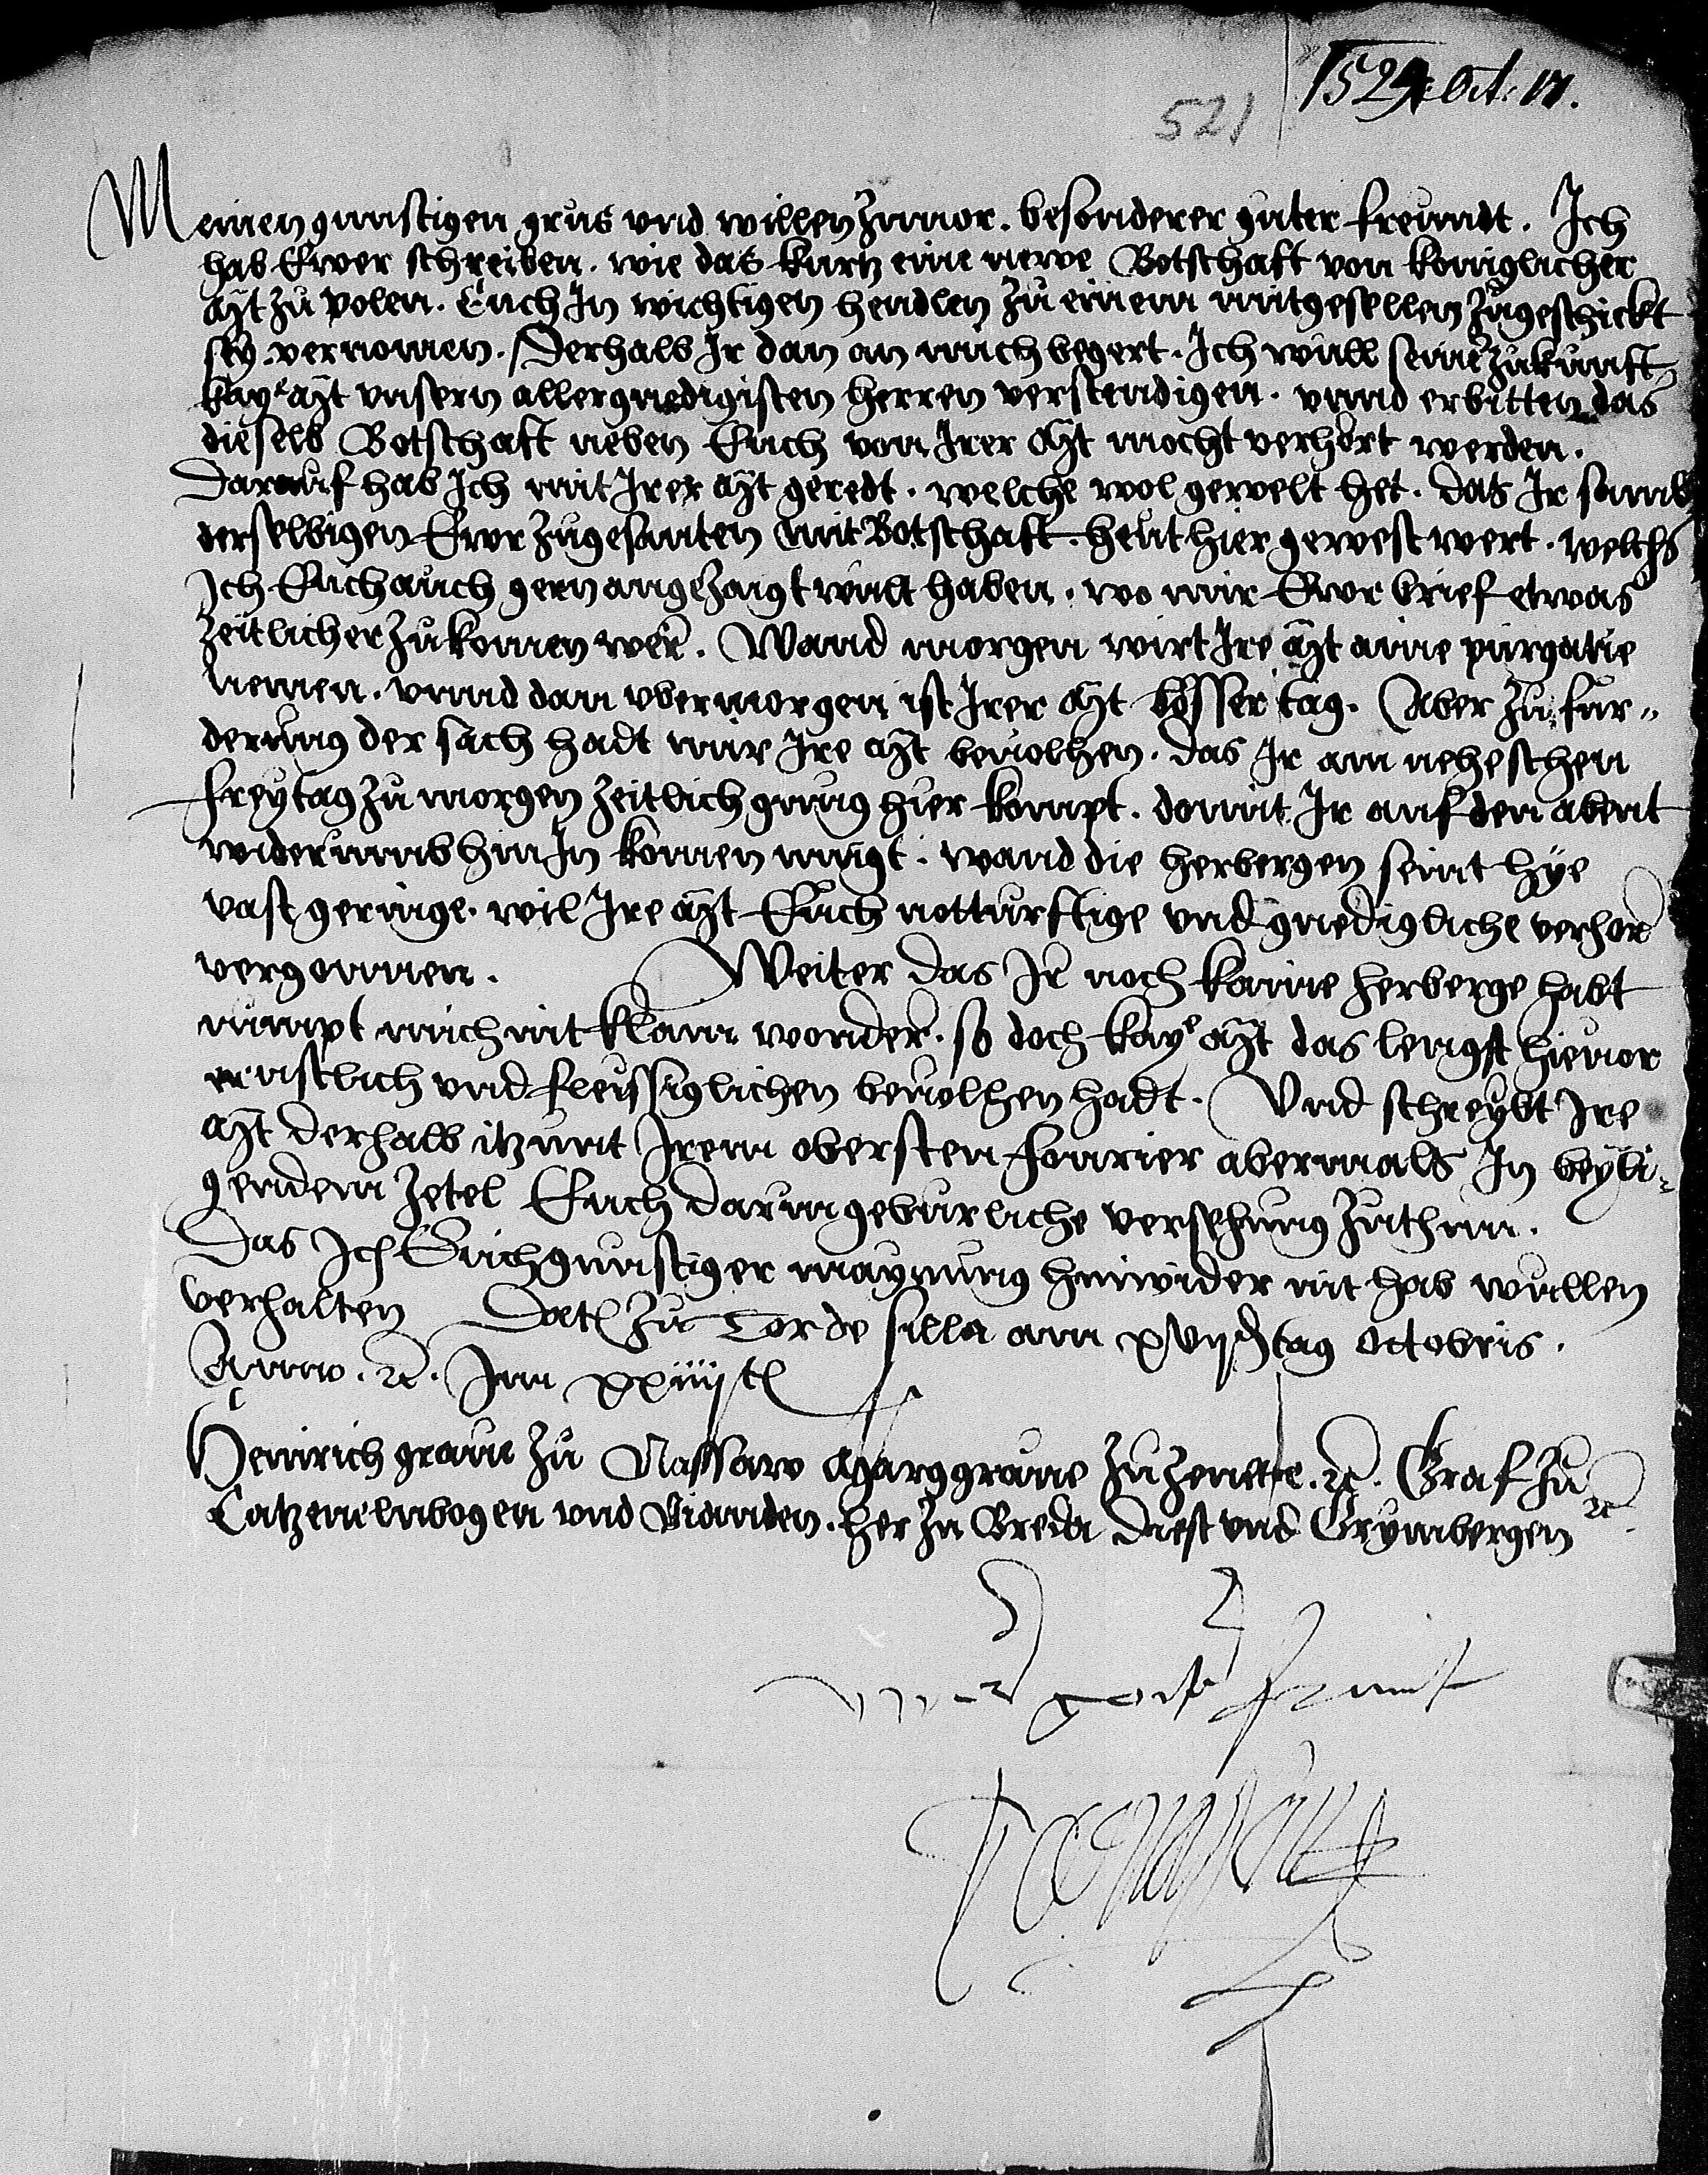 1524 Oct. 17.
521
Meinen gunstigen grus vnd willen zuuor. besonderer guter freundt. Ich
hab Ewer schreiben. wie das kurtz eine newe Botschaft von koniglicher
Mt zu polen. Euch In wichtigen hendlen zu einem mitgesellen zugeschickt
sey. vernomen. Derhalb Ir dan an mich begert. Ich wull seine zukunft
kayr Mt vnsern allergnedigisten herren verstendigen. vnnd erbitten das
dieselb Botschaft neben Euch von Irer Mt mocht verhort werden.
Darauf hab Ich mit Irer Mt geredt. welche wol gewelt het. das Ir samb
derselbigen Ewr zugesanten mit Botschaft. heut hier gewest wert. welchs
Ich Euch auch gern angezaigt wult haben. wo mir Ewr brief etwas
zeitlicher zu komen wer. Wand morgen wirt Ire Mt aine purgatie
nemen. vnnd dan vbermorgen ist Irer Mt bosser tag. Aber zu fur„
derung der sach hadt mir Ire Mt beuolhen. das Ir am neheschen
freytag zu morgen zeitlich gnug hier kompt. domit Ir auf den abent
widerumb hin In komen mugt. wand die herbergen seint hye
vast geringe. wil Ire Mt Euch notturftige vnd gnedigliche verhor
vergonnen. Weiter das Ir noch kaine herberge habt
nimpt mich nit klain wonder. so doch kayr Mt das lengst hieuor
ernstlich vnd fleissiglichen beuolhen hadt. Vnd schreybt Ire
Mt derhalb itzunt Irem obersten fourier abermals In beyli„
gendem zetel Euch darin geburliche versehung zuthun.
Das Ich Euch gunstiger maynung hinwider nit hab wullen
verhalten Datl zu Tordesilla am xvijten tag Octobris.
Anno. rc. Im xxiiijtl
Heinrich graue zu Nassaw Marggraue zu Zenette. rc. Graf zu
Catzenelnbogen vnd Vianden. her zu Breda Diest vnd Grymbergen rc